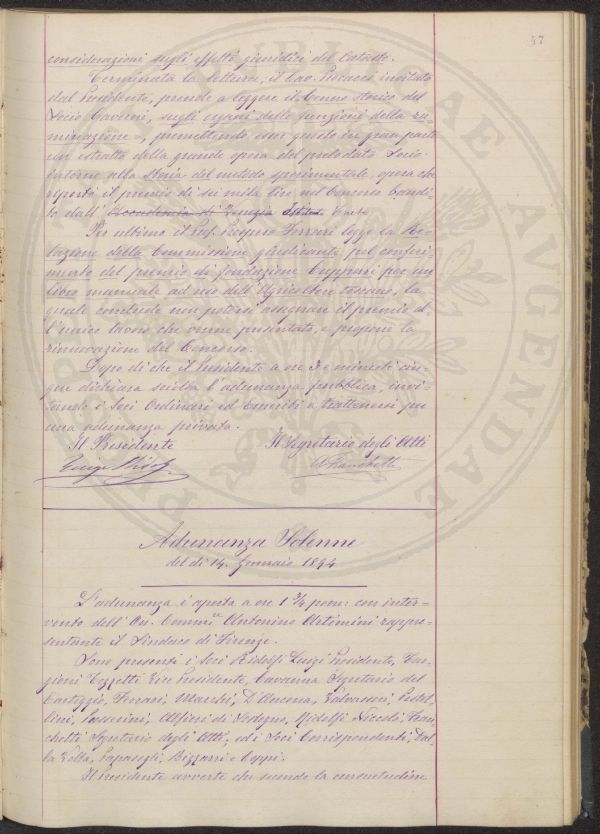 47
considerazioni sugli effetti giuridici del Catasto.
Terminata la lettura, il Cav. invitato
dal Presidente, prende a leggere il Cenno storico del
Socio Caverni, sugli organi delle funzioni della ru-
minazione, premettendo esser questo in gran parte
un estratto della grande opera del prelodato Socio
intorno alla Storia del metodo sperimentale, opera che
riportò il premio di sei mila lire nel Concorso bandi-
to dall' Accademia di Venezia Istituto Veneto
Per ultimo il Prof. Ferrari legge la Re-
lazione della Commissione giudicante pel conferi-
mento del premio di fondazione Cuppari per un
libro manuale ad uso dell'Agricoltore toscano, la
quale conclude non potersi assegnare il premio al-
l'unico lavoro che venne presentato, e propone la
rinnovazione del Concorso.
Dopo di che il Presidente a ore 3 e minuti cin-
que dichiara sciolta l'adunanza pubblica, invi-
tando i Soci Ordinari ed Emeriti a trattenersi per
una adunanza privata.
Il Presidente Il Segretario degli Atti
Luigi Ridolfi A. Franchetti
Adunanza Solenne
del dì 14. Gennaio 1894
L'adunanza è aperta a ore 1 3/4 pom: con inter-
vento dell' On. Comm.re Antonino Artimini rappre-
sentante il Sindaco di Firenze.
Sono presenti i Soci Ridolfi Luigi Presidente, Tar-
gioni Tozzetti Vice Presidente, Cavanna Segretario del
Carteggio, Ferrari, Marchi, D'Ancona, Pestel-
lini, Passerini, Alfieri di Sostegno, Ridolfi Niccolò, Fran-
chetti Segretario degli Atti, ed i Soci Corrispondenti, Dal-
la Volta, Papasogli, Bizzarri e Oppi.
Il Presidente avverte che secondo la consuetudine